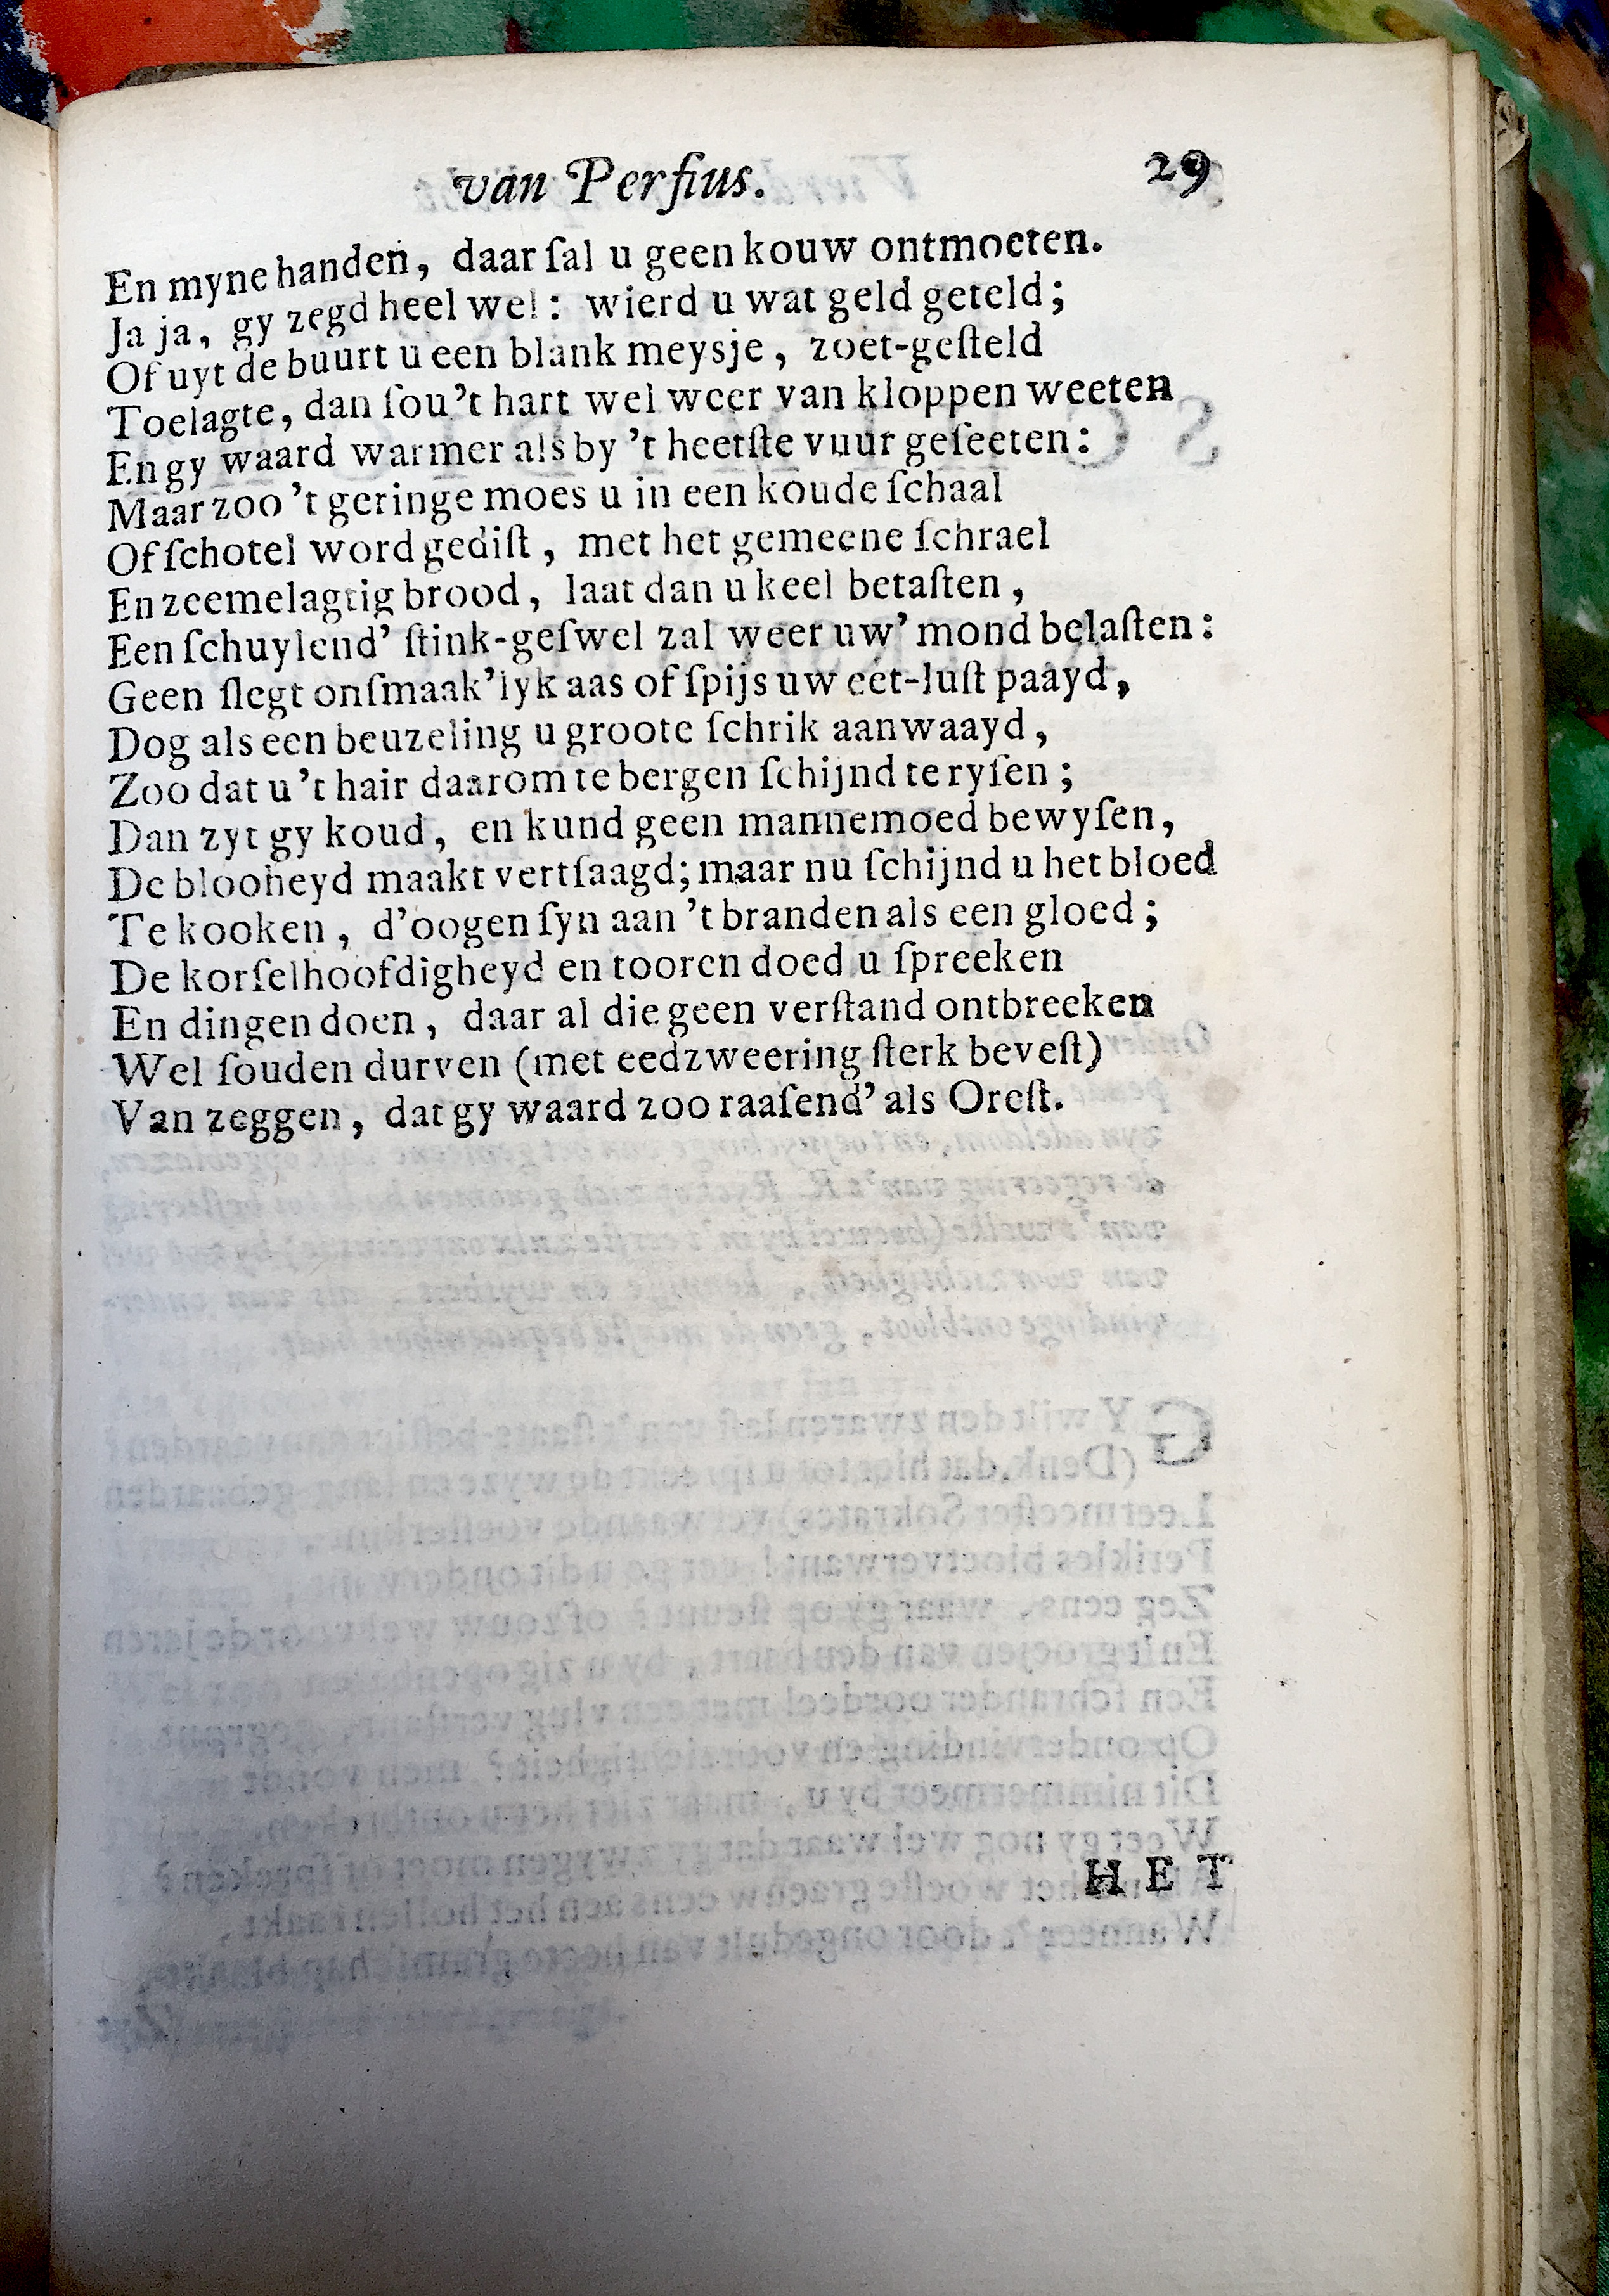 van Perſius. 29
En myne handen, daar ſal u geen kouw ontmoeten.
Ja ja, gy zegd heel wel: wierd u wat geld geteld;
Of uyt de buurt u een blank meysje, zoet-geſteld
Toelagte, dan ſou't hart wel weer van kloppen weeten
En gy waard warmer als by 't heetſte vuur geſeeten:
Maar zoo 't geringe moes u in een koude ſchaal
Of ſchotel word gediſt, met het gemeene ſchrael
En zeemelagtig brood, laat dan u keel betaſten,
Een ſchuylend' ſtink-geſwel zal weer uw' mond belaſten:
Geen ſlegt onſmaak'lyk aas of ſpijs uw eet-luſt paayd,
Dog als een beuzeling u groote ſchrik aanwaayd,
Zoo dat u 't hair daarom te bergen ſchijnd te ryſen;
Dan zyt gy koud, en kund geen mannemoed bewyſen,
De blooheyd maakt vertſaagd; maar nu ſchijnd u het bloed
Te kooken, d'oogen ſyn aan 't branden als een gloed;
De korſelhoofdigheyd en tooren doed u ſpreeken
En dingen doen, daar al die geen verſtand ontbreeken
Wel ſouden durven (met eedzweering ſterk beveſt)
Van zeggen, dat gy waard zoo raaſend' als Oreſt.
HET